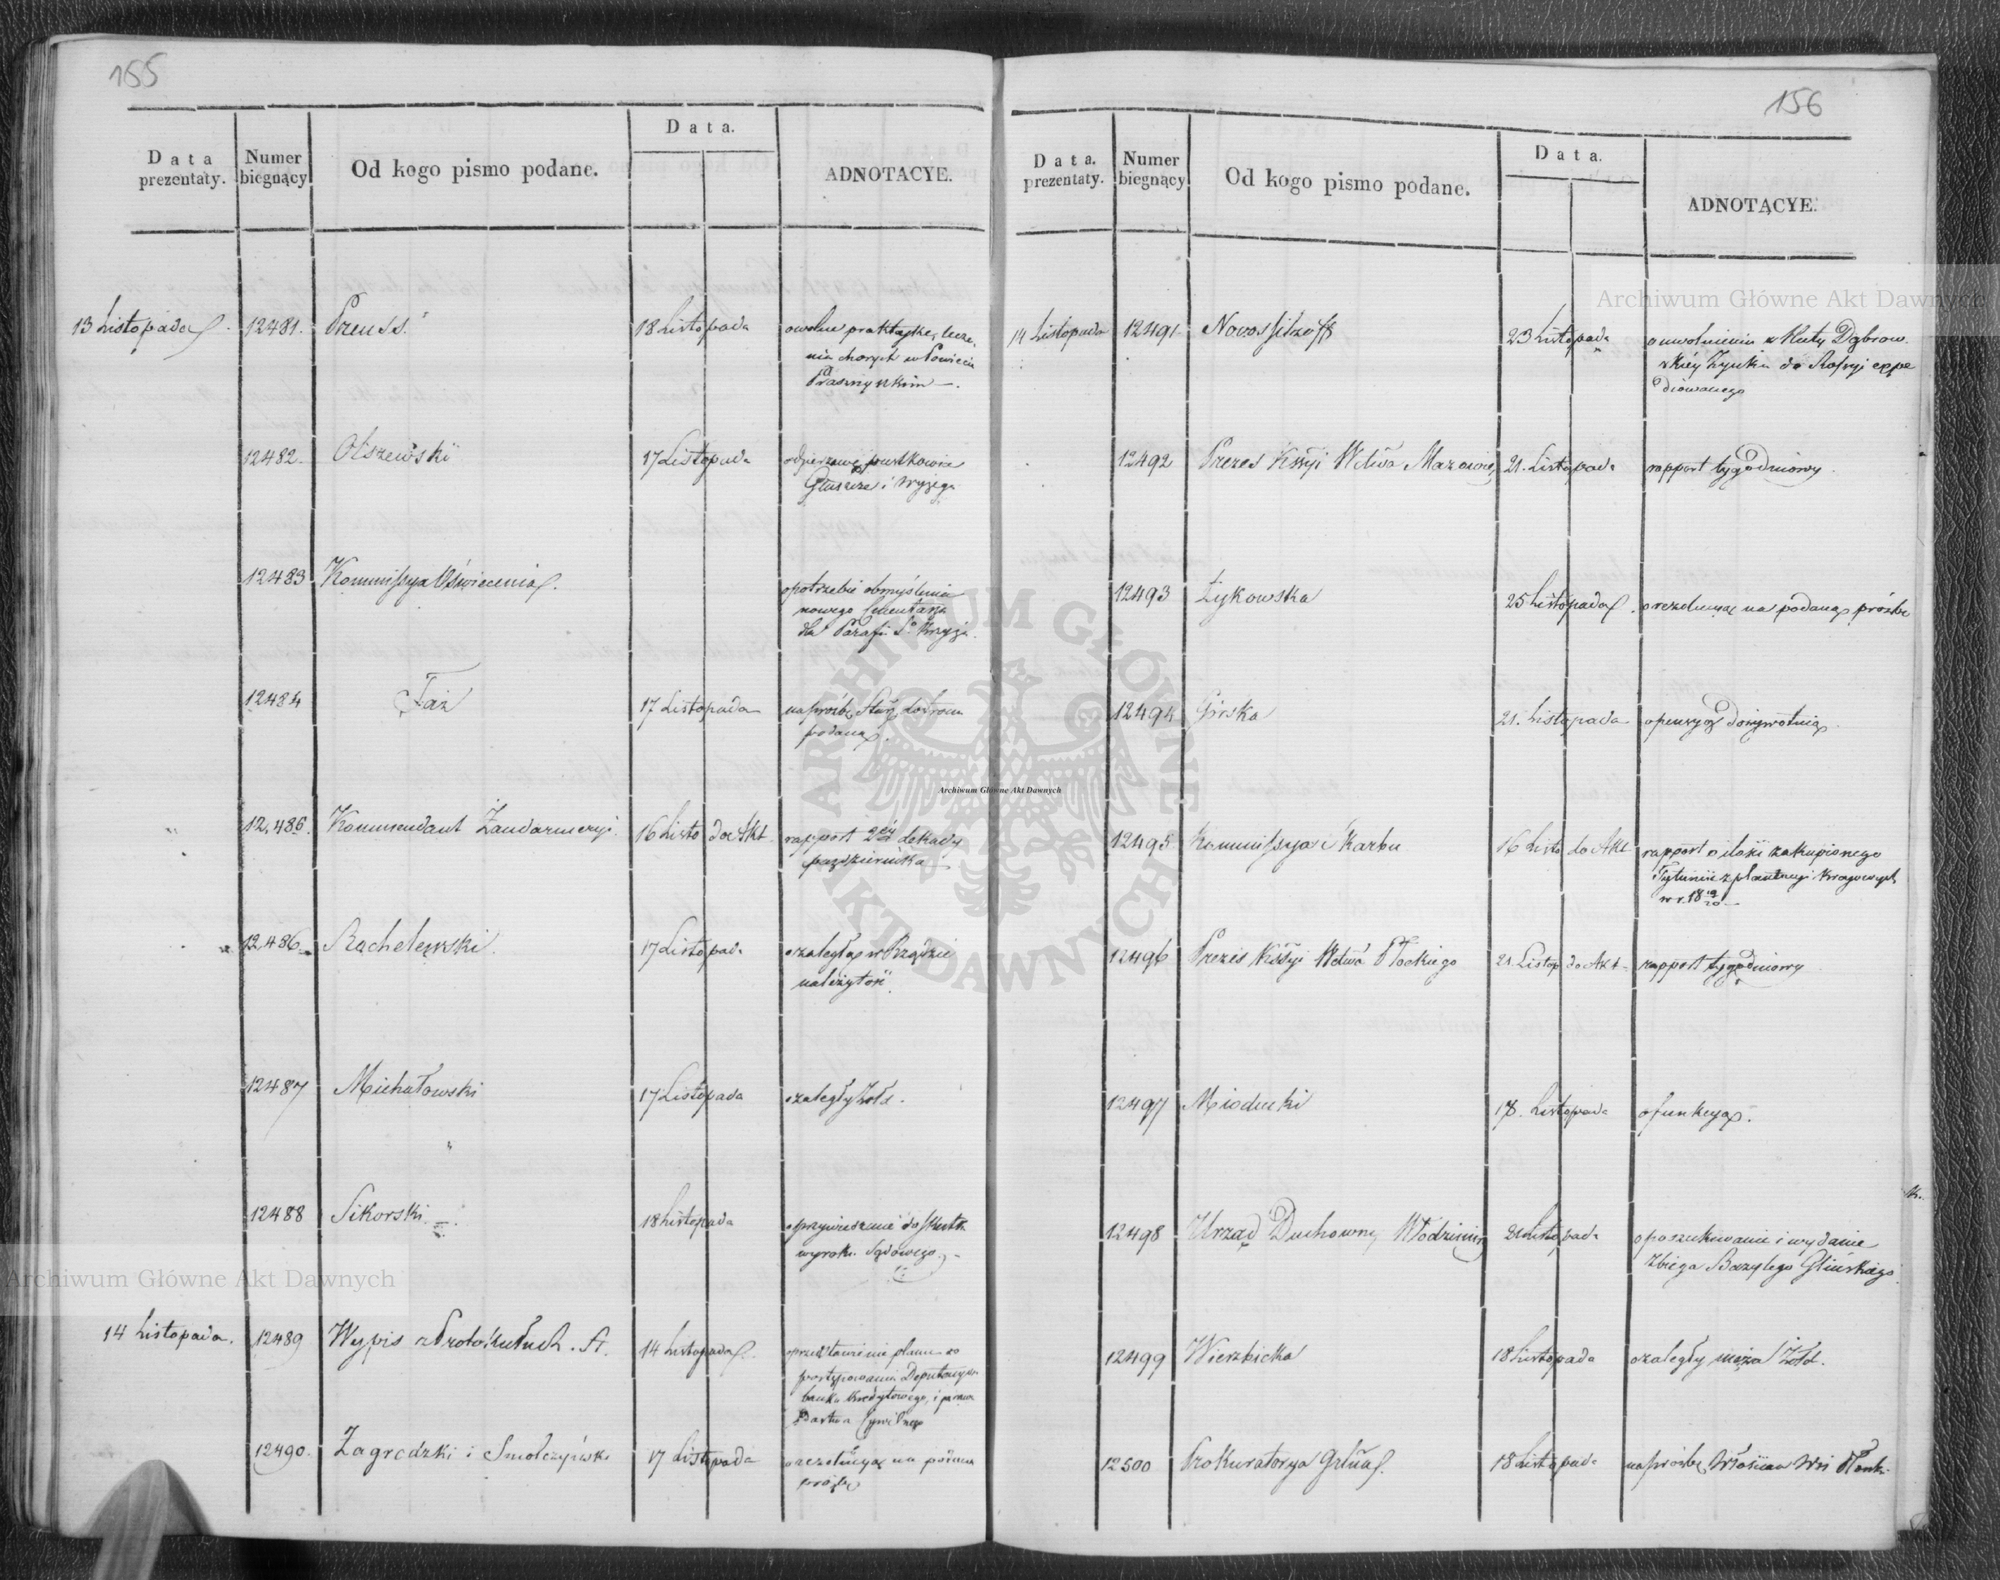 155
Data prezentaty.
Numer biegnący
Od kogo pismo podane.
Data.
ADNOTACYE.
13 Listopada
12481.
Preuss
18 Listopada
praktykę lecze-
nia chorych w Powiecie
Prasnyskim
12482.
Olszewski
17 Listopada
pustkowie
i
12483
Kommissya Oświecenia
o potrzebie obmyślenia
nowego
dla Parafii Sº Krzyża
12484
Taż
17 Listopada
na prośbę
podaną
12,486.
Kommendant Żandarmeryi
16 Listo do Akt
rapport 2éj dekady
października
12,486
17 Listopada
o zaległą w Rządzie
należytość
12487
Michałowski
17 Listopada
o zaległy żołd.
12488
Sikorski
18 Listopada
do skutku
wyroku Sądowego.
14 Listopada.
12489
Wypis z Protokułu
14 Listopada
planu do
postępowania
Kredytowego, i
Cywilnego
12490.
Zagrodzki i
17 Listopada
o rezolucyą na podaną
prośbę
156
Data. prezentaty.
Numer biegnący
Od kogo pismo podane.
Data.
ADNOTĄCYE.
14 Listopada
12491
Nowossilzoff
23 Listopada
o uwolnieniu z Huty Dąbrow-
skiéj do Rossyi expe
diowanego
12492
Prezes Kssyi Wdwa Mazowiec
21. Listopada
rapport tygodniowy
12493
Żykowska
25 Listopada
o rezolucyą na podaną prośbę
12494
Górska
21. Listopada
o pensyą dożywotnią
12495
Kommissya Skarbu
16 Listo do Akt
rapport o ilości zakupionego
Tytuniu z plantacyi kraiowych
w r. 18 19/20
12496
Prezes Kssyi Wdwa Płockiego
21 Listop do Akt
rapport tygodniowy
12497
Mioducki
18. Listopada
o funkcyą.
12498
Urząd Duchowny
21 Listopada
o poszukiwanie i wydanie
zbiega Bazylego Glińskiego
12499
Wierzbicka
18 Listopada
o zaległy męża żołd.
12500
Prokuratorya
18 Listopada
na prośbę Włościan Wsi
Archiwum Główne Akt Dawnych
Archiwum Główne Akt Dawnych
Archiwum Główne Akt Dawnych
ARCHIWUM GŁÓWNE AKT DAWNYCH